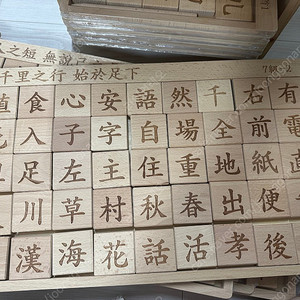 之短 無說
千里之行 始於足下
植 食 心 安 語 然 千 右 有
入 子 字 自 場 全 前 電
足 左 主 住 重 地 紙 直
川 草 村 秋 春 出 便
漢 海 花 話 活 孝 後